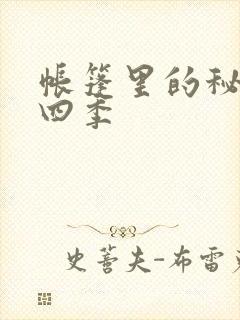 帐篷里的秘
四季
史蒈夫-布雷